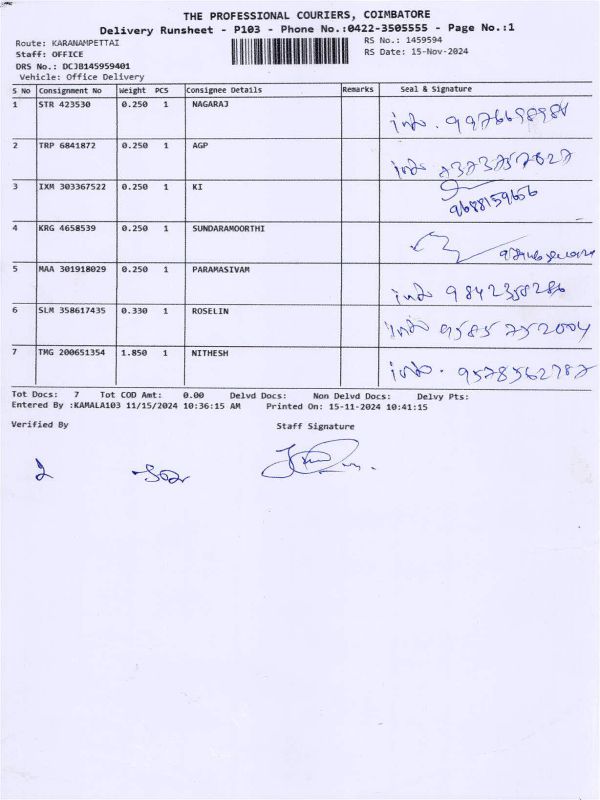 THE PROFESSIONAL COURIERS, COIMBATORE
Delivery Runsheet - P103 - Phone No.:0422-3505555 - Page No.:1
Route: KARANAMPETTAI RS No.: 1459594
Staff: OFFICE RS Date: 15-Nov-2024
DRS No.: DCJB145959401
Vehicle: Office Delivery
S No Consignment No Weight PCS Consignee Details Remarks Seal & Signature
1 STR 423530 0.250 1 NAGARAJ
2 TRP 6841872 0.250 1 AGP
3 IXM 303367522 0.250 1 KI
9688159656
4 KRG 4658539 0.250 1 SUNDARAMOORTHI
5 MAA 301918029 0.250 1 PARAMASIVAM
9842358286
6 SLM 358617435 0.330 1 ROSELIN
9585752004
7 TMG 200651354 1.850 1 NITHESH
9578562787
Tot Docs: 7 Tot COD Amt: 0.00 Delvd Docs: Non Delvd Docs: Delvy Pts:
Entered By :KAMALA103 11/15/2024 10:36:15 AM Printed On: 15-11-2024 10:41:15
Verified By Staff Signature